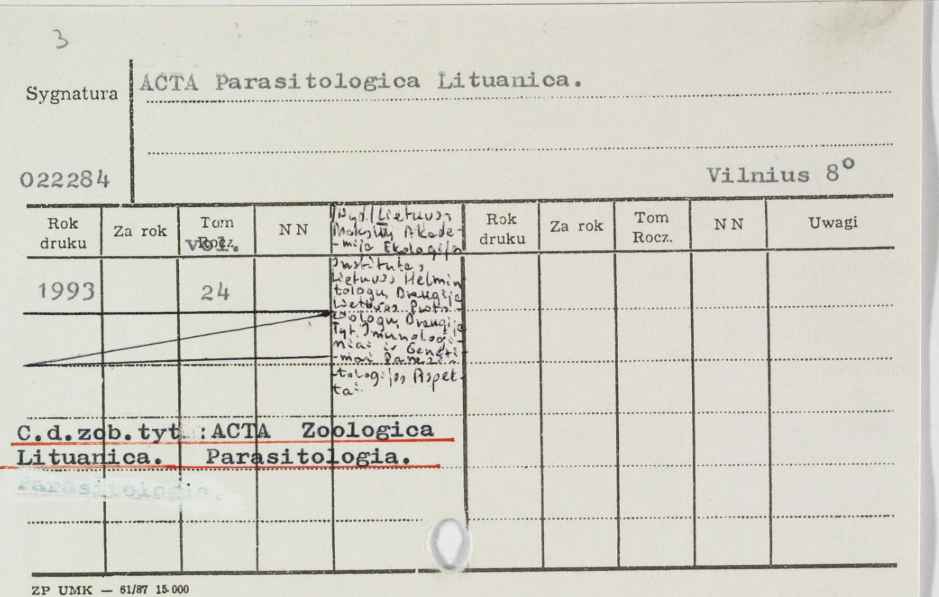 3
Sygnatura
ACTA Parasitologica Lituanica.
022284
Vilnius 8°
Rok druku
Za rok
Tom Rocz.
vol.
NN
Rok druku
Za rok
Tom Rocz.
NN
Uwagi
Lietuvos
Mokslų Akade-
-mija Ekologijo
Institutas,
Lietuvos Helmin
tologų Draugija
Lietuvos Proto-
zoologų Draugija
Tyt. Imunologi-
niai ir Geneti-
mai Parazi
-tologijos Aspek-
tai
1993
24
C.d.zob.tyt.:ACTA Zoologica
Lituanica. Parasitologia.
Parasitologia.
ZP UMK — 61/87 15 000